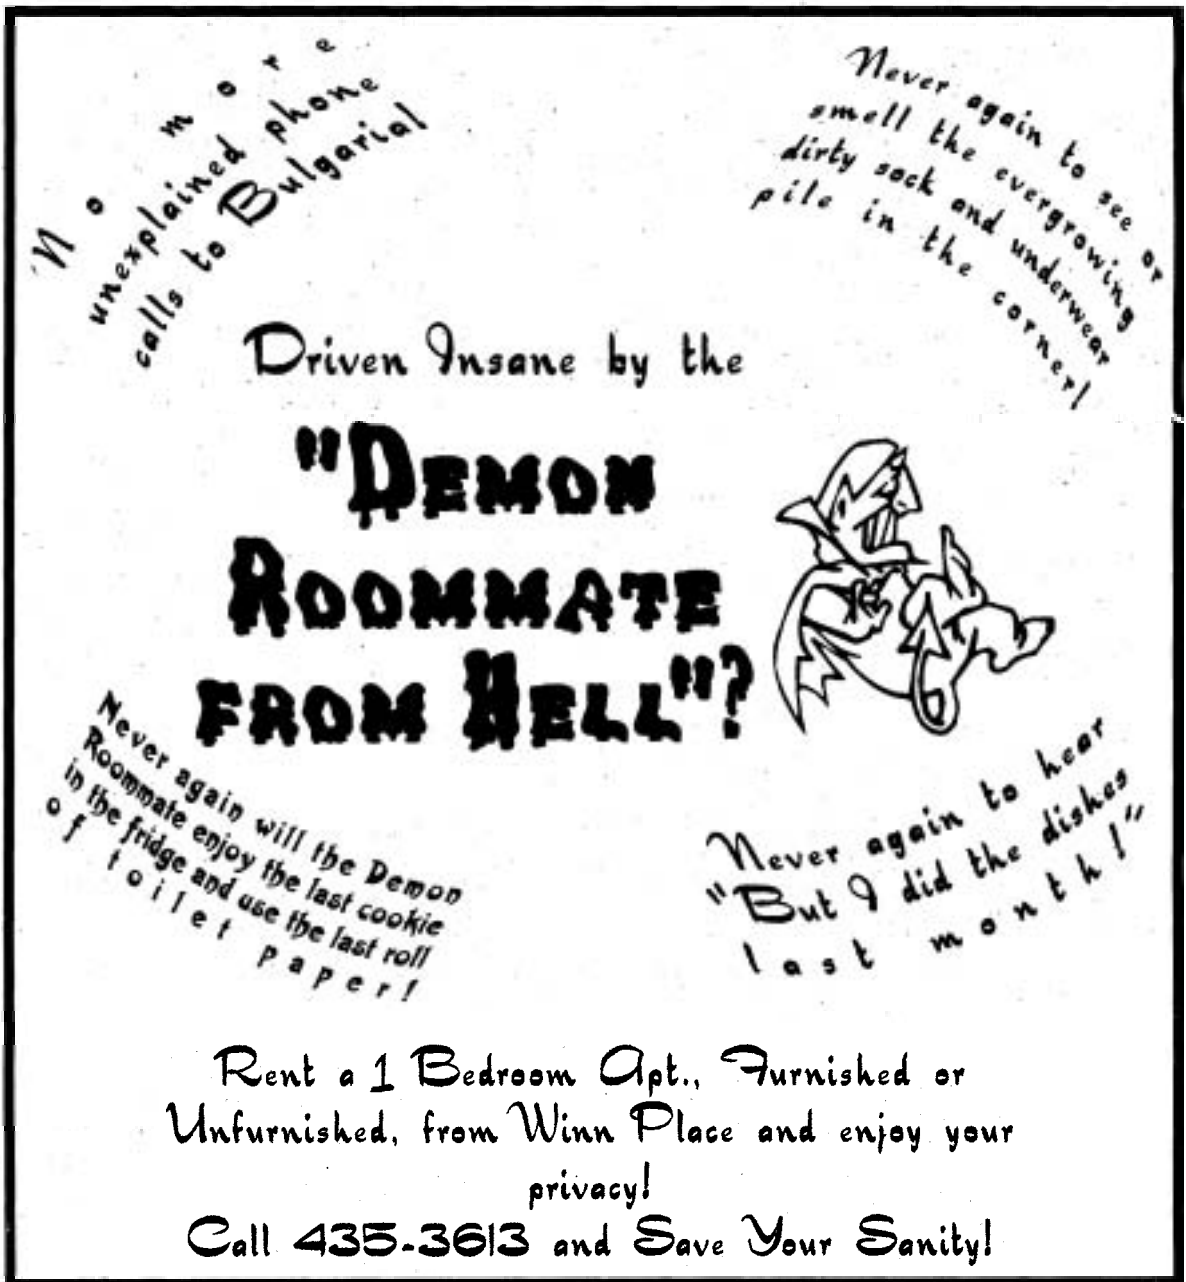 No more
unexplained phone
calls to Bulgaria!
Never again to see or
smell the evergrowing
dirty sock and underwear
pile in the corner!
Driven Insane by the
"DEMON
ROOMMATE
FROM HELL"?
Never again will the Demon
Roommate enjoy the last cookie
in the fridge and use the last roll
of toilet paper!
Never again to hear
"But I did the dishes
last month!"
Rent a 1 Bedroom Apt., Furnished or
Unfurnished, from Winn Place and enjoy your
privacy!
Call 435-3613 and Save Your Sanity!